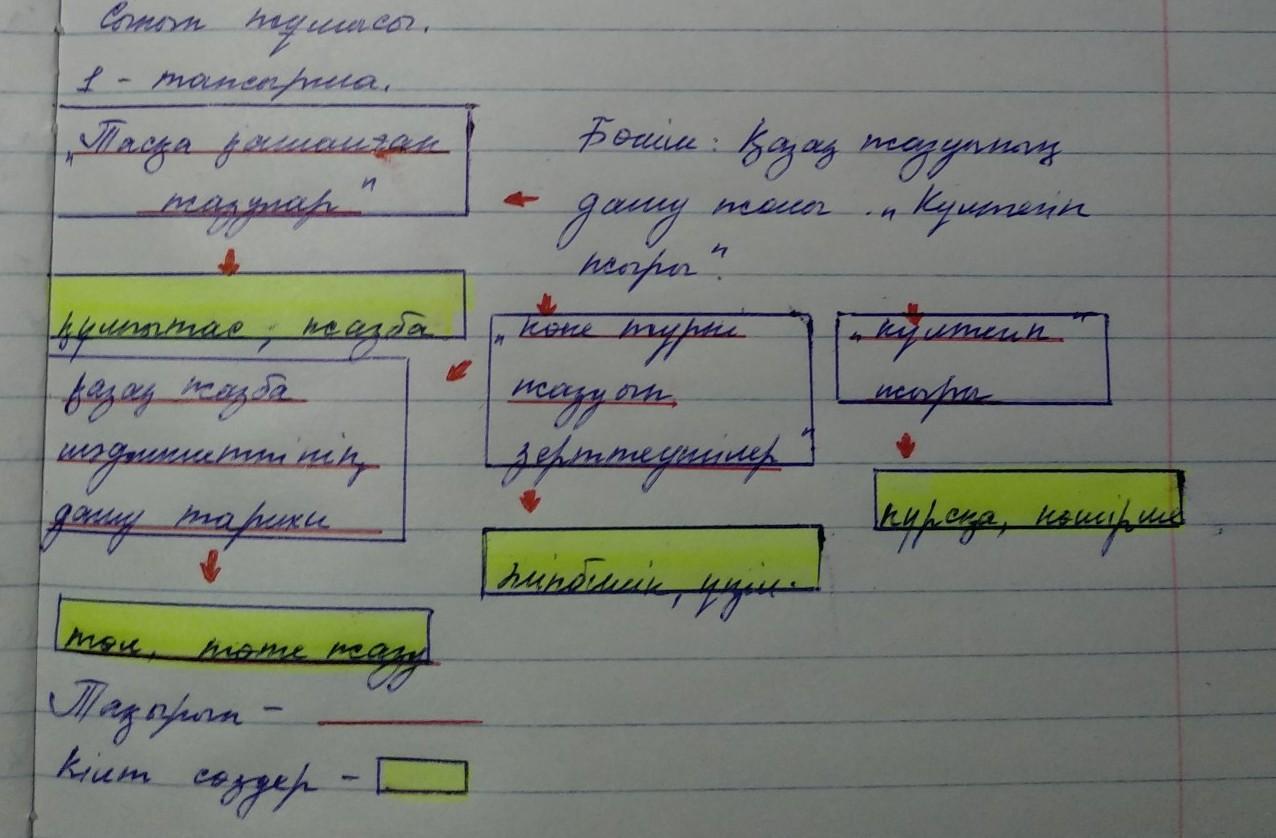 Сынып жұмысы.
1 - тапсырма.
„Тасқа қашалған
жазулар"
Бөлім: Қазақ жазуының
даму жолы. „Күлтегін
жыры".
құлпытас, жазба
қазақ жазба
мәдениетінің
даму тарихы
төл, төте жазу
„көне түркі
жазуын
зерттеушілер"
үзім.
„күлтегін"
жыры
нұсқа, көшірме
Тақырып -
Кілт сөздер -